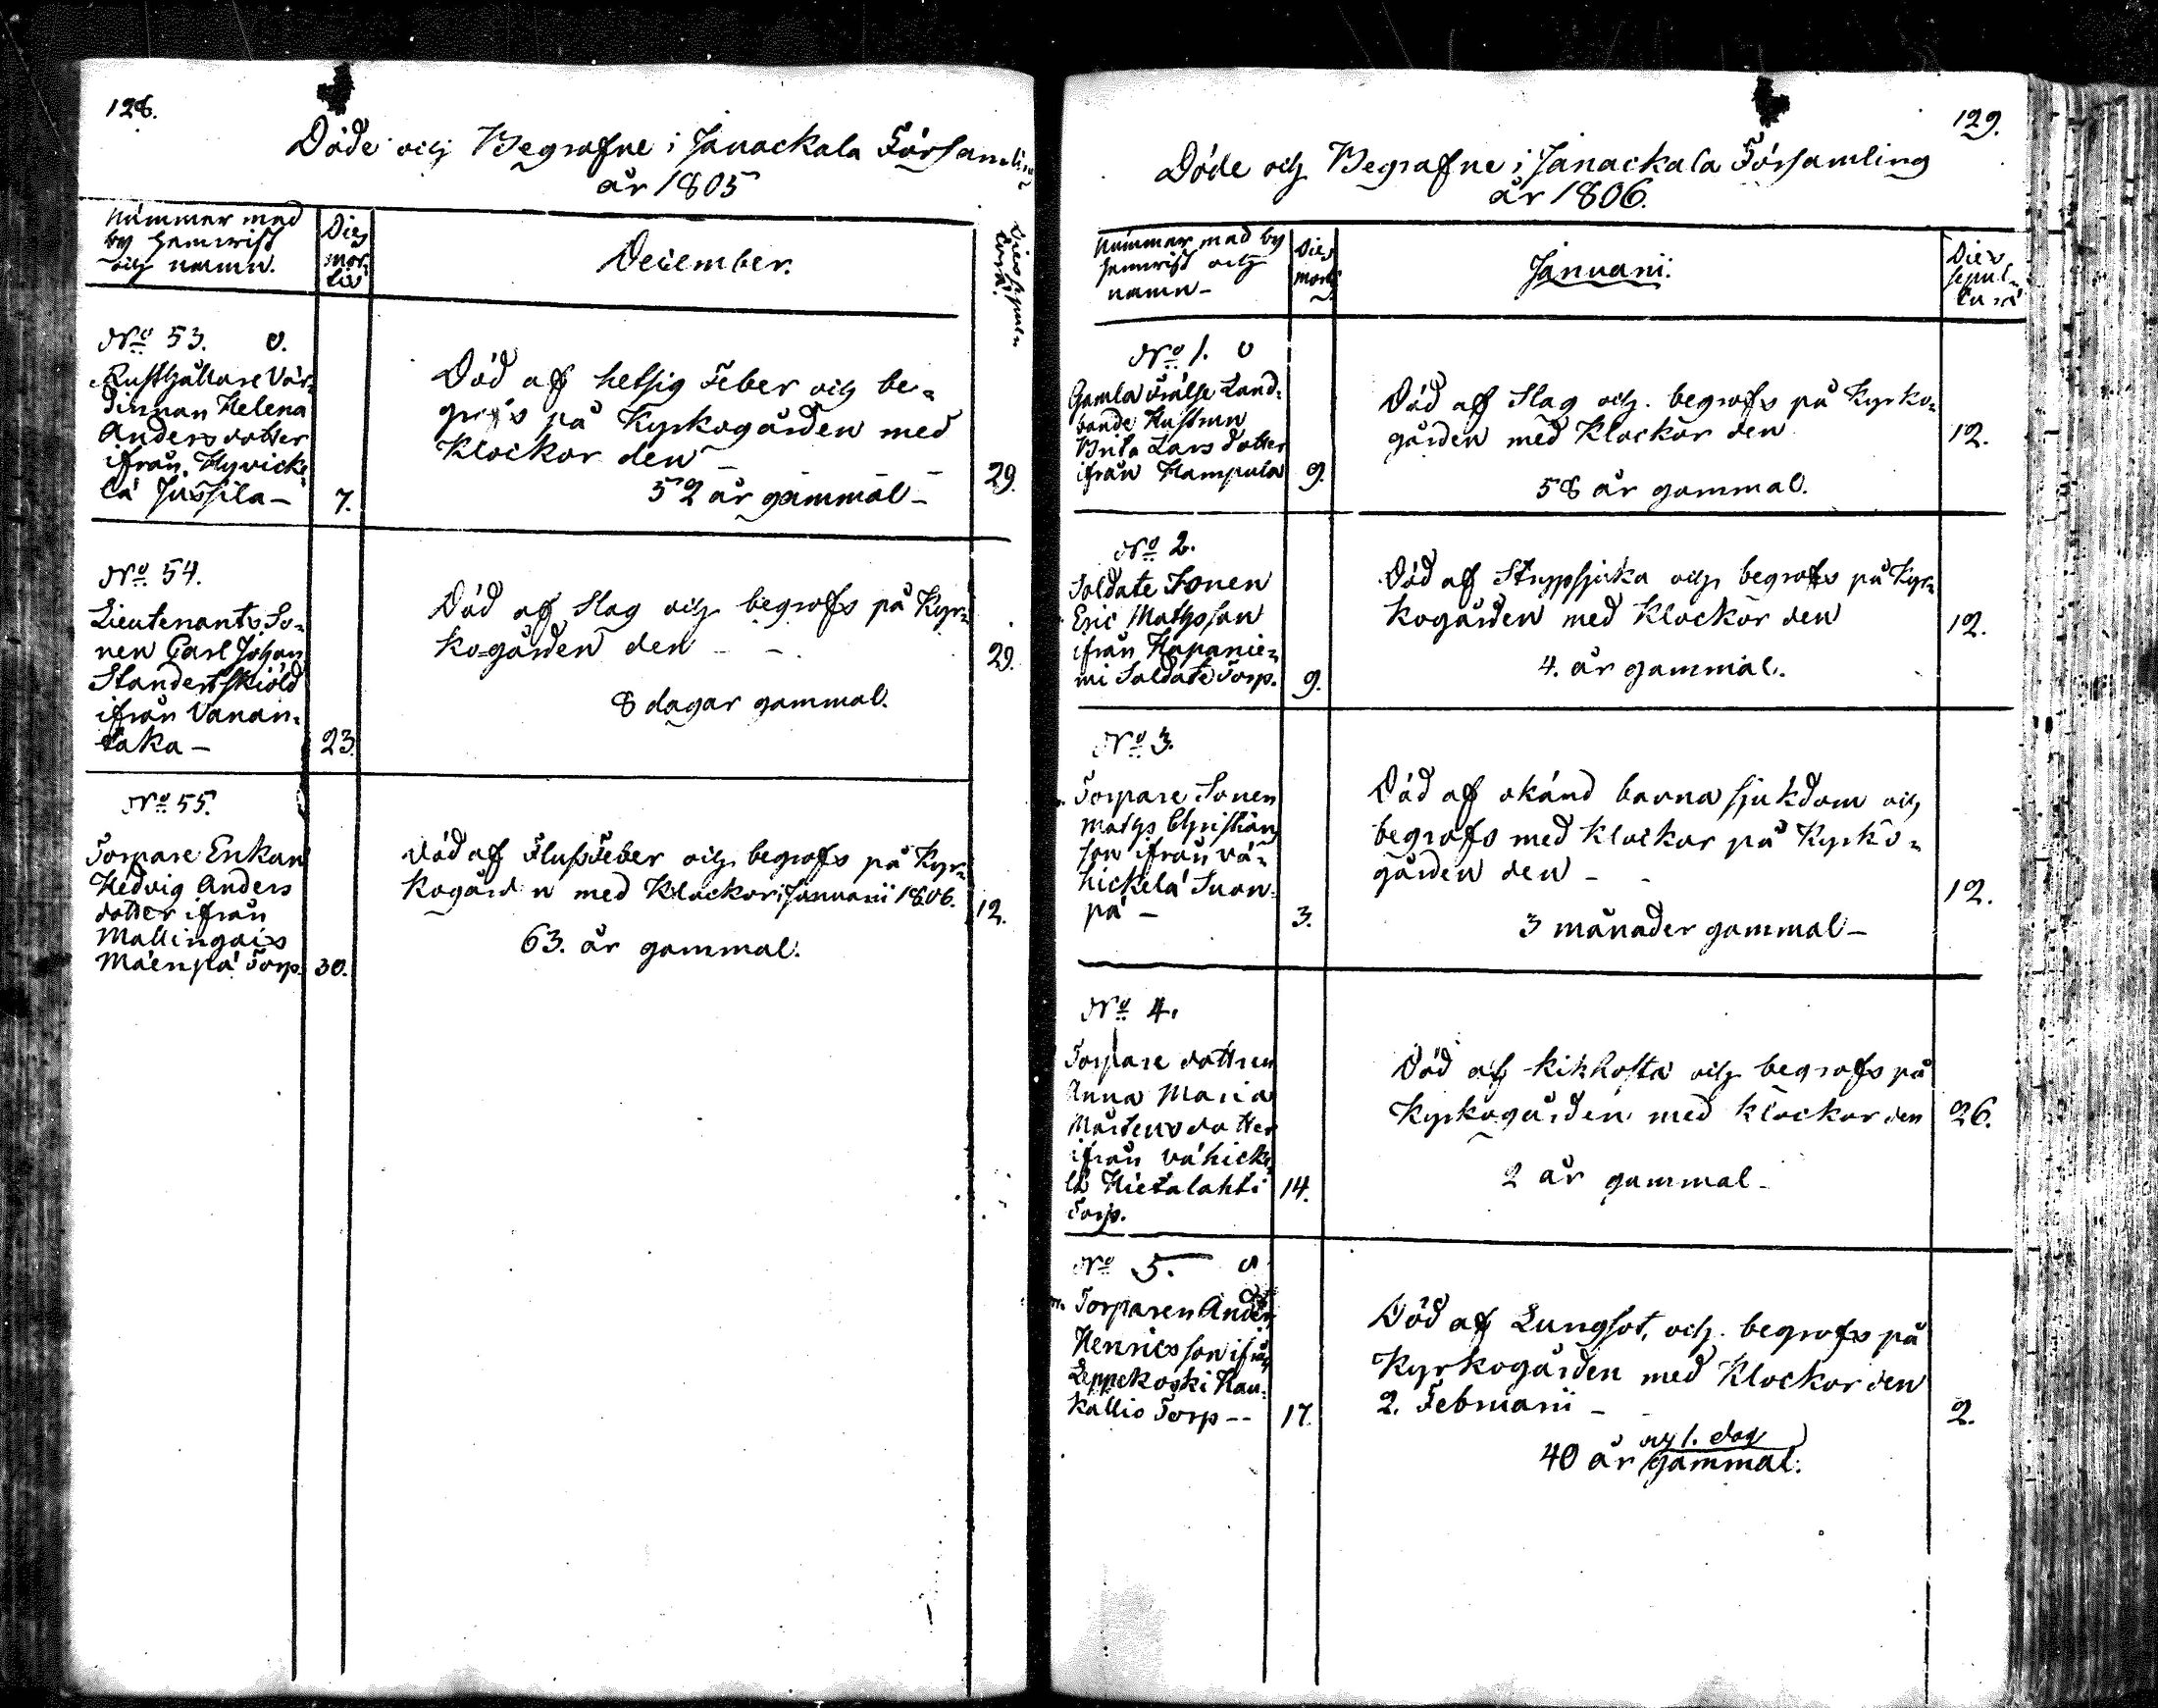 128.
Döde och Begrafne i Janackala Församling
år 1805
Nummer med
by hemvist
och namn.
Dies
mor-
tis
December.
Dies sepul-
turæ.
No 53. O.
Rusthållare Vär-
dinnan Helena
Anders dotter
ifrån Hyvicke-
lä Jussila-
7.
Död af hetsig Feber och be-
grofs på Kyrkogården med
Klockor den -
52 år gammal-
29.
No 54.
Lieutenants So-
nen Carl Johan
Standertskiöld
ifrån Vanan-
taka-
23.
Död af Slag och begrofs på Kyr-
ko-gården den - -
8 dagar gammal.
29.
No 55.
Torpare Enkan
Hedvig Anders
dotter ifrån
Mallingais
Mäenpä Torp.
30.
Död af Flussfeber och begrofs på Kyr-
kogården med Klockor i Januarii 1806.
63. år gammal.
12.
129.
Döde och Begrafne i Janackala Församling
år 1806.
Nummer med by
hemvist och
namn-
Dies
mortis
Januarii.
Dies
sepul-
turæ
No 1. O
Gamla Frälse Land-
bonde Hustrun
Brita Lars dotter
ifrån Hampula
9.
Död af Slag och begrofs på Kyrko-
gården med Klockor den
58 år gammal.
12.
No 2.
Soldate Sonen
Eric Mathsson
ifrån Hapanie-
mi Soldate Torp.
9.
Död af Strypsjuka och begrofs på Kyr-
kogården med Klockor den
4. år gammal.
12.
No 3.
Torpare Sonen
Maths Christian
son ifrån Vä-
hickelä Suon-
pä-
3.
Död af okänd barna sjukdom och
begrofs med Klockor på Kyrko-
gården den - -
3 månader gammal-
12.
No 4.
Torpare dottren
Anna Maria
Mårtens dotter
ifrån Vähicke-
lä Hietalahti
Torp.
14.
Död af Kikhosta och begrofs på
Kyrkogården med Klockor den
2 år gammal-
26.
No 5. O
Torparen Anders
Henricsson ifrån
Leppekoski Kau-
kallio Torp--
17.
Död af Lungsot, och begrofs på
Kyrkogården med Klockor den
2. Februarii - -
och 1. dag
40 år gammal.
2.